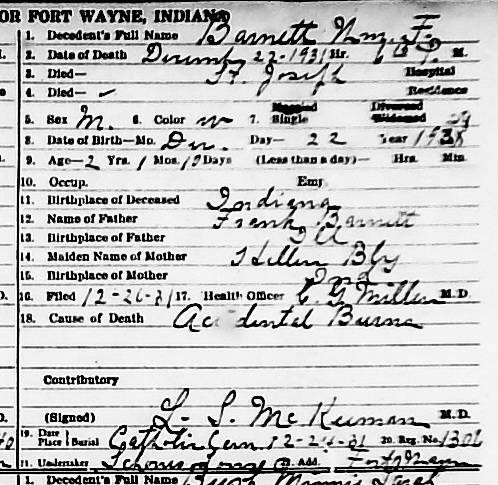 OR FORT WAYNE, INDIANA
1. Decedent's Full Name Barnett Wm. F.
2. Date of Death Decemb 22-1931 Hr. 6 P. M.
3. Died— St. Joseph Hospital
4. Died— Residence
5. Sex M. 6. Color w 7. Married Single Divorced Widowed
8. Date of Birth—Mo. Dec. Day— 22 Year
9. Age—2 Yrs. 1 Mos. Days (Less than a day)— Hrs. Min
10. Occup. Emp.
11. Birthplace of Deceased Indiana
12. Name of Father Frank Barnett
13. Birthplace of Father
14. Maiden Name of Mother Hellen Bly
15. Birthplace of Mother Ind
16. Filed 12-26-31 17. Health Officer E. G. Miller M. D.
18. Cause of Death Accidental Burns
Contributory
(Signed) L. S. McKeeman M. D.
19. Date Place } Burial Catholic Cem 12-24-31 20. Reg. No. 1302
21. Undertaker 22. Add. Fort Wayne
1. Decedent's Full Name